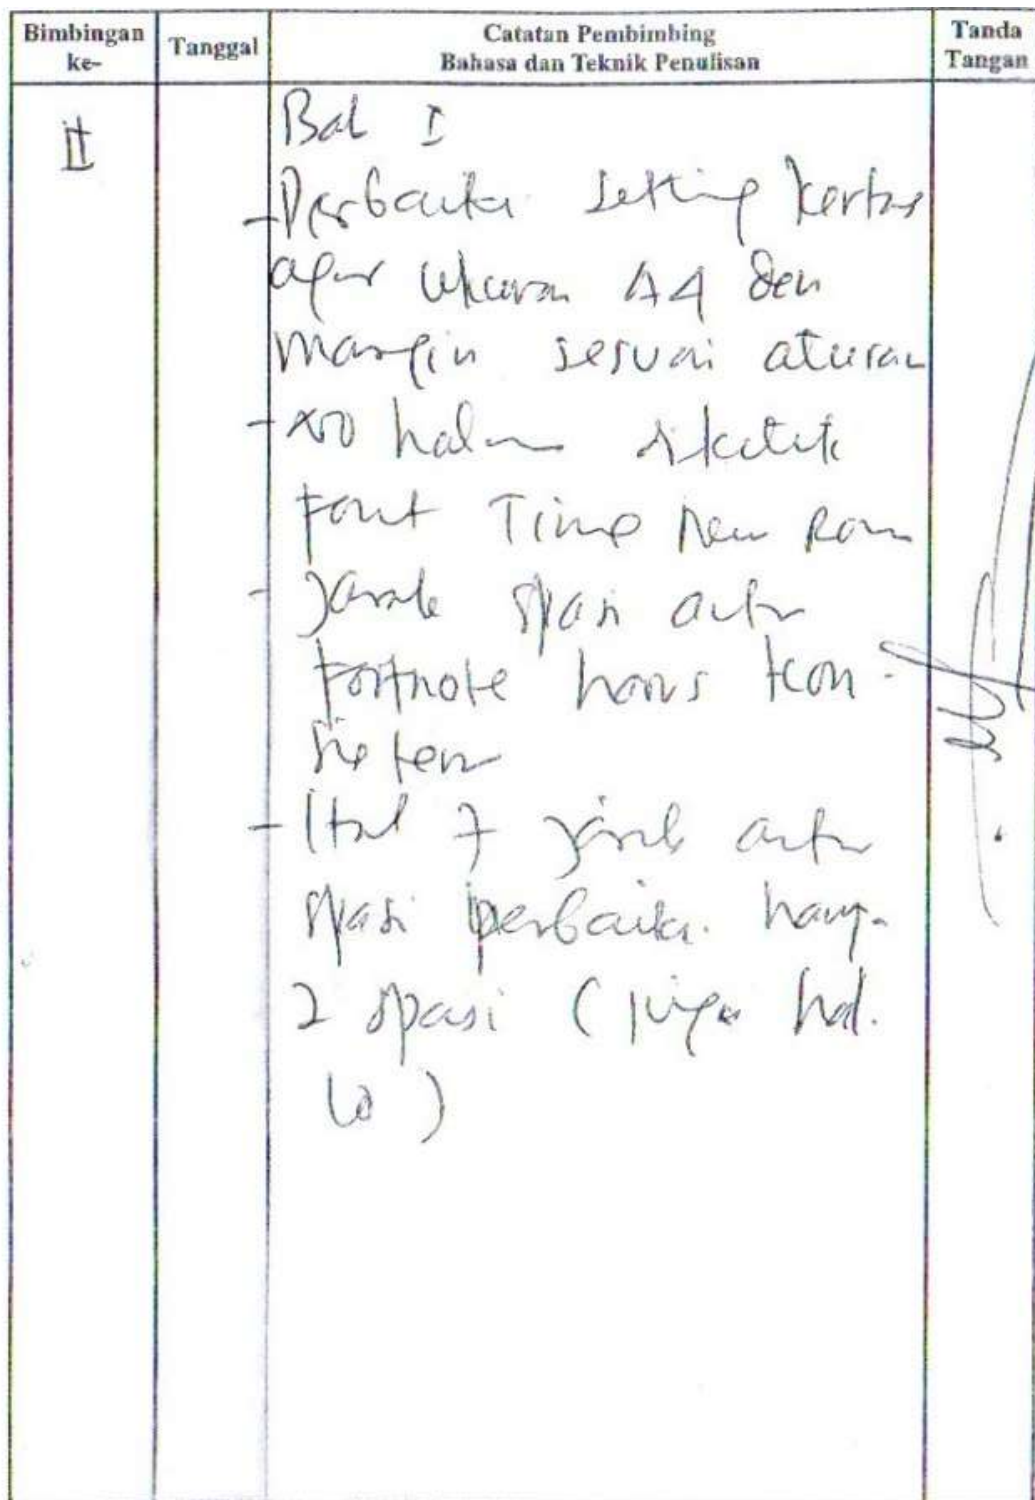 Bimbingan ke-
Tanggal
Catatan Pembimbing
Bahasa dan Teknik Penulisan
Tanda Tangan
II
Bab I
- Perbaiki setting kertas
agar ukuran A4 dan
margin sesuai aturan
- no halm diketik
font Time New Rom
- jarak spasi antar
footnote harus kon-
sisten
- Hal 7 jarak antar
spasi perbaiki. hany-
2 spasi (juga hal.
)